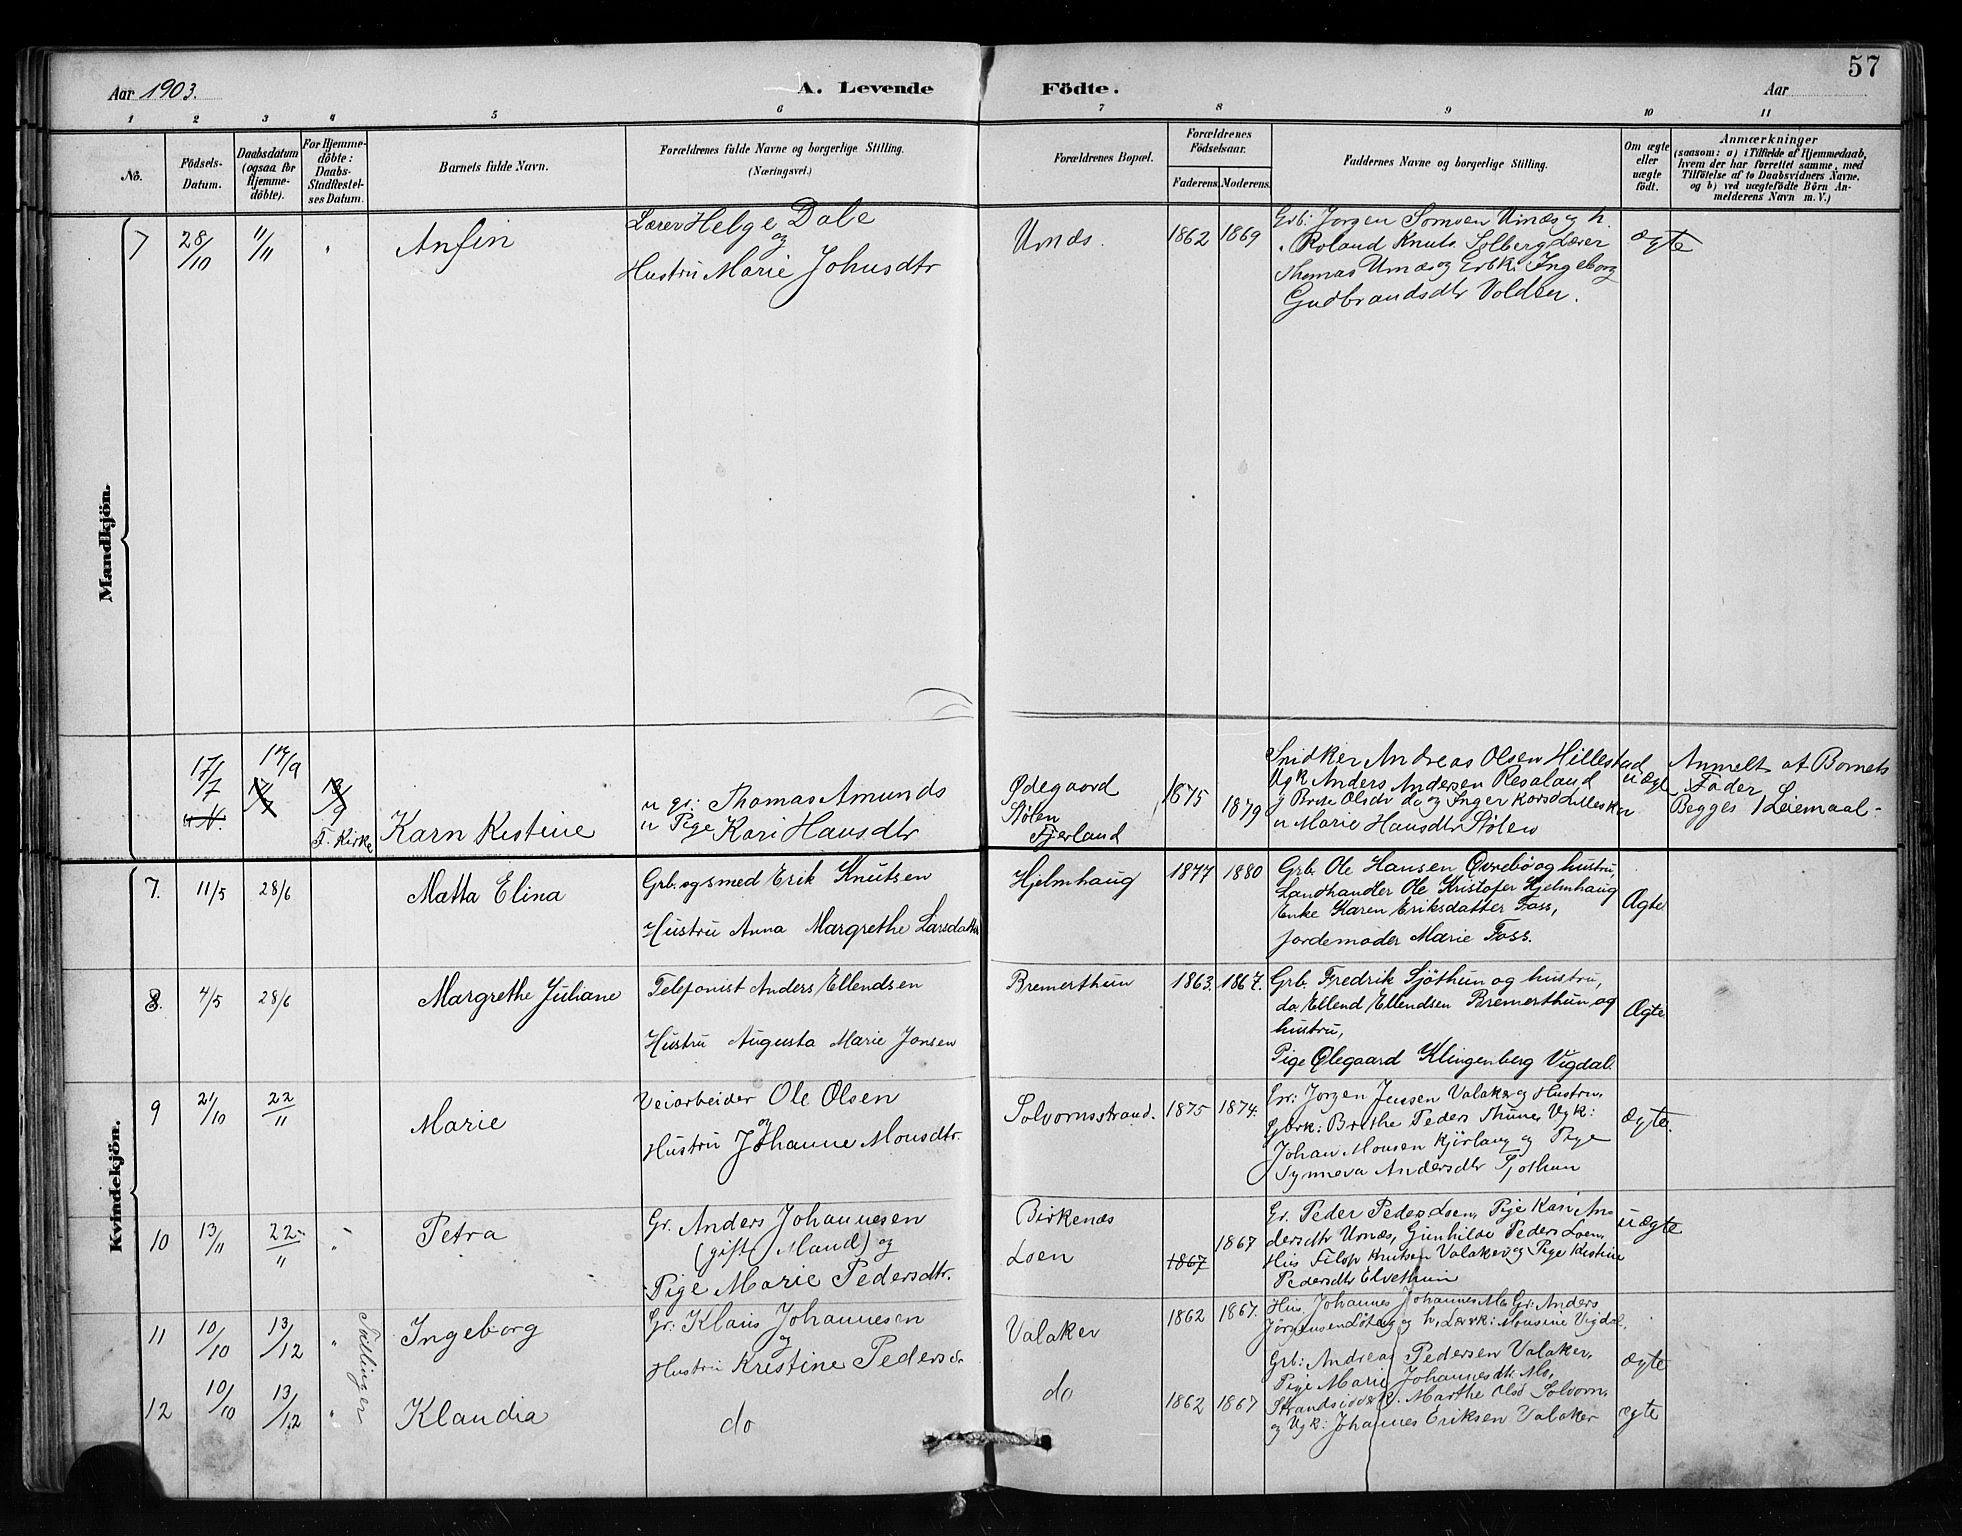 57
Aar 1903.
A. Levende Födte.
Aar
1 2 3 4 5 6 7 8 9 10 11
No.
Födsels-Datum.
Daabsdatum (ogsaa for Hjemme-döbte).
For Hjemme-döbte: Daabs-Stadfæstel-ses Datum.
Barnets fulde Navn.
Forældrenes fulde Navne og borgerlige Stilling.
(Næringsvei.)
Forældrenes Bopæl.
Forældrenes Födselsaar.
Faderens. Moderens.
Faddernes Navne og borgerlige Stilling.
Om ægte eller uægte födt.
Anmærkninger
(saasom: a) i Tilfælde af Hjemmedaab,
hvem der har forrettet samme, med
Tilföielse af to Daabsvidners Navne,
og b) ved uægtefödte Börn An-
melderens Navn m. V.)
Mandkjön.
7 28/10 11/11 " Anfin
Lærer Helge Dale
og
Hustru Marie Johnsdtr
Urnæs. 1862 1869
Grb: Jørgen Urnæs og h.
Roland Knuts. Solberg Lærer
Thomas Urnæs og Ingeborg
Gudbrandsdtr Volden.
ægte
17/7 17/9
F. Kirke
Karn Kistine
u gr: Thomas Amunds
u Pige Kari Hansdtr
Ødegaard
Stølen
Fjerland
1875 1879
Snidker Andreas Olsen Hillestad
Ugk Anders Andersen Resaland
Marie Hansdtr Stølen
uægt
Anmelt af Barnets
Fader
Begges 1 Leiemaal-
Kvindekjön.
7. 11/5 28/6 Matta Elina
Grb. og smed Erik Knutsen
Hustru Anna Margrethe Larsdatter
Hjelmhaug 1877 1880
Grb. Ole Hansen Øvrebø og hustru,
Landhandler Ole Kristofer Hjelmhaug
Enke Karen Eriksdatter Foss,
Jordemoder Marie Foss.
Ægte
8. 4/5 28/6 Margrethe Juliane
Telefonist Anders Ellendsen
Hustru Augusta Marie Jonsen
Bremerthun 1863. 1867.
Grb. Fredrik Sjøthun og hustru,
do. Ellend Ellendsen Bremerthun og
hustru,
Pige Ølegaard Klingenberg Vigdal.
Ægte
9 21/10 22/11 Marie
Veiarbeider Ole Olsen
og
Hustru Johanne Monsdtr.
Solvornsstrand. 1875 1874.
Grr: Jørgen Jensen Valaker og Hustru.
Brithe Peders Thune, Ugk:
Johan Monsen Kjørlaug og Pige
Synneva Andersdtr Tjothun
ægte.
10 13/11 22/11 " Petra
Gr. Anders Johannesen
(gift Mand) og
Pige Marie Pedersdtr.
Birkenæs
Loen
1867 1867
Gr. Peder Peders Loen, Pige Kari An
dersdtr Urnæs, Gunhilde Peders Loen,
Hus Filip Knutsen Valaker og Pige Kistine
Pedersdtr Elvethun
uægte
11 10/10 13/12 " Tvillinger Ingeborg
Gr: Klaus Johannesen
og
Hustru Kristine Pedersd.
Valaker 1862 1867.
Hus. Johannes Johannes Mo Gr. Anders
Jørgensen og h, Monsine Vigdal.
ægte
12 10/10 13/12 " Klaudia
do
do 1862 1867
Grb: Andreas Pedersen Valaker,
Pige Marie Johannesdtr Mo,
Marthe Olsd Solvorn,
og Ugk: Johannes Eriksen Valaker
ægte